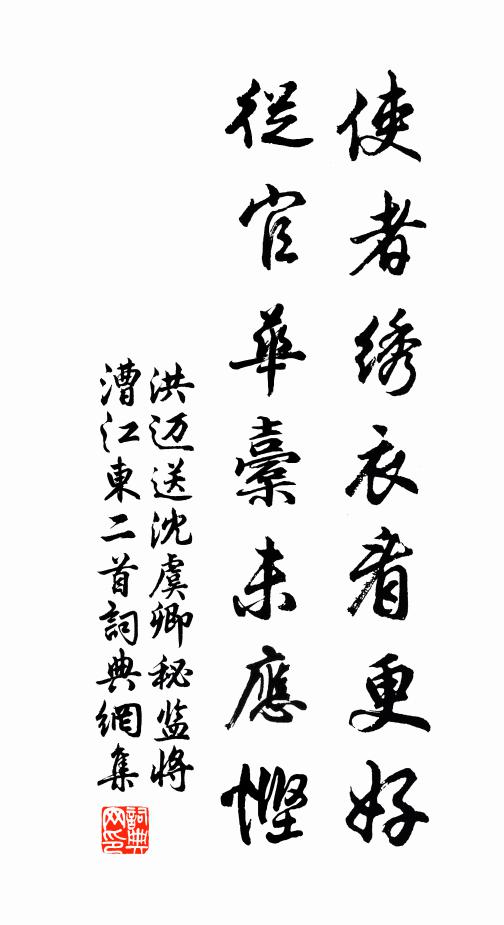 使者绣衣看更好
從官華橐未應慳
洪迈送沈虞卿秘监將
漕江東二首詞典網集
詞典
网印